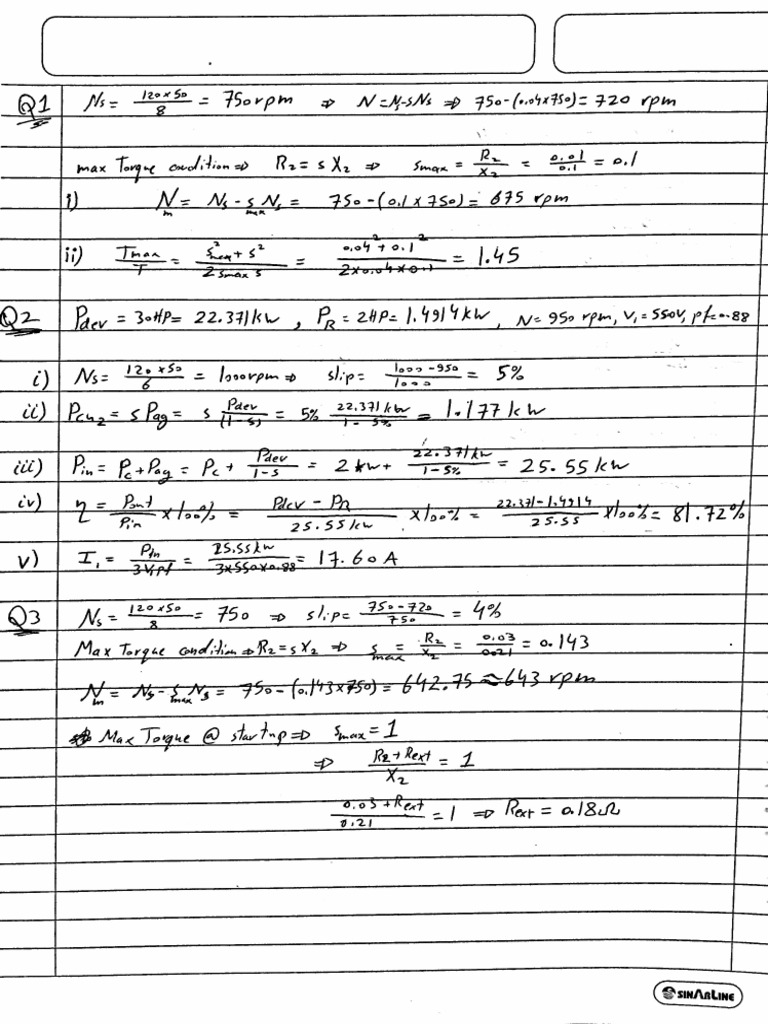 Q1 Ns = 120×50/8 = 750 rpm ⇒ N = Ns-sNs ⇒ 750-(0.04×750) = 720 rpm
max Torque condition ⇒ R2 = s X2 ⇒ smax = R2/X2 = 0.01/0.1 = 0.1
i) Nm = Ns - smax Ns = 750-(0.1×750) = 675 rpm
ii) Tmax/T = s²max + s²/2 smax s = 0.04²+0.1²/2×0.04×0.1 = 1.45
Q2 Pdev = 30HP = 22.371kw, PR = 2HP = 1.4914kw, N = 950 rpm, V1 = 550V, pf=0.88
i) Ns = 120×50/6 = 1000rpm ⇒ slip = 1000-950/1000 = 5%
ii) Pcu2 = s Pag = s Pdev/(1-s) = 5% 22.371kw/1-5% = 1.177 kw
iii) Pin = Pc + Pag = Pc + Pdev/1-s = 2kw + 22.371kw/1-5% = 25.55 kw
iv) η = Pout/Pin ×100% = Pdev - PR/25.55kw ×100% = 22.371-1.4914/25.55 ×100% = 81.72%
v) I1 = Pin/3V1pf = 25.55kw/3×550×0.88 = 17.60A
Q3 Ns = 120×50/8 = 750 ⇒ slip = 750-720/750 = 4%
Max Torque condition ⇒ R2 = sX2 ⇒ smax = R2/X2 = 0.03/0.21 = 0.143
Nm = Ns - smax Ns = 750-(0.143×750) = 642.75 ≈ 643 rpm
Max Torque @ startup ⇒ smax = 1
⇒ R2+Rext/X2 = 1
0.03+Rext/0.21 = 1 ⇒ Rext = 0.18Ω
SINARLINE